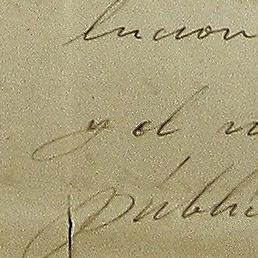 lucion
y el
públi